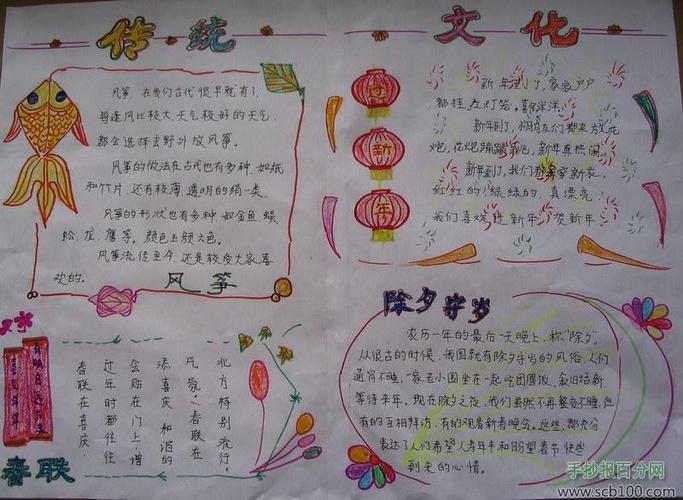 传统
文化
风筝，在我们古代很早就有了，
每逢风比较大，天气较好的天气，
都会选择去野外放风筝。
风筝的做法在古代也有多种，如纸
和竹片，还有较薄，透明的绢一类。
风筝的形状也有多种，如金鱼，蜈
蚣，龙，鹰等，颜色五颜六色。
风筝流传至今，还是较受大家喜
欢的。
风筝
过新年
新年到了，家家户户
都挂起灯笼，喜气洋洋。
新年到了，们都来放花
炮，新年真热闹。
新年到了，我们都穿新衣，
红红的，绿绿的，真漂亮，
我们喜欢过新年，贺新年。
春联
北方特别流行。
气氛，春联在
添喜庆和谐的
会贴春联增
过年时都往
春联在喜庆
除夕守岁
农历一年的最后一天晚上，称“除夕”。
从很古的时候，我国就有除夕守岁的风俗，人们
通宵不睡，一家老小围坐在一起吃团圆饭，叙旧话新，
等待来年。现在除夕之夜，我们虽然不再整夜不睡，但
有的互相拜访，有的观看新春晚会。这些，都充分
表达了人们希望人寿年丰和盼望春节快些
到来的心情。
手抄报百分网
www.scb100.com